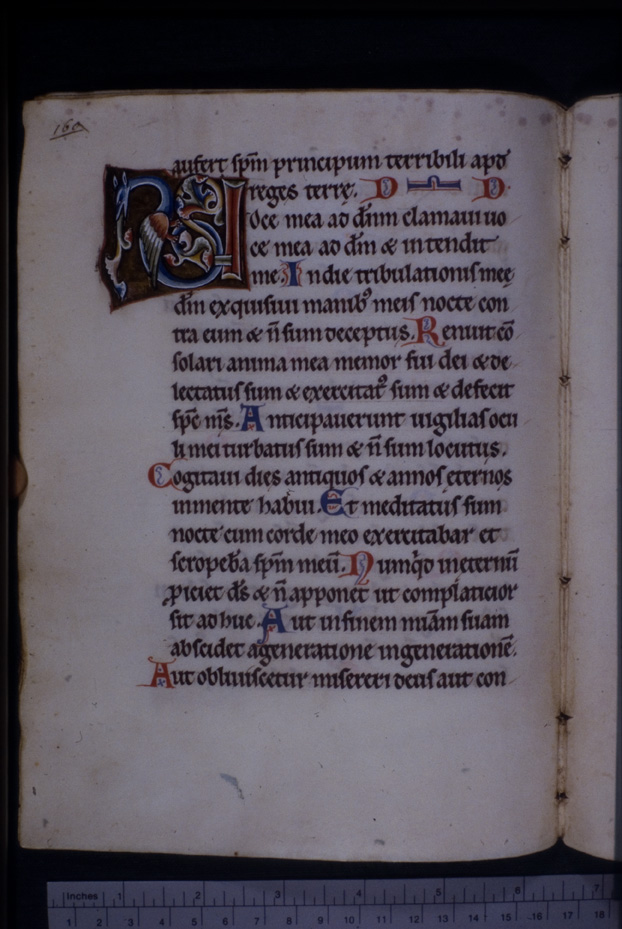 160
aufert spm principum terribili apd
reges terre. D D
Voce mea ad dnm clamaui uo
ce mea ad dm & intendit
me. In die tribulationis mee
dm exquisiui manib; meis nocte con
tra eum & n sum deceptus. Renuit co
solari anima mea memor fui dei & de
lectatus sum & exercitat; sum & defecit
spc ms. Anticipauerunt uigilias ocu
li mei turbatus sum & n sum locutus.
Cogitaui dies antiquos & annos eternos
in mente habui. Et meditatus sum
nocte cum corde meo exercitabar et
scopeba spm meu. Numqd in eternu
piciet ds & n apponet ut complacitior
sit adhuc. Aut in finem miam suam
abscidet a generatione in generatione.
Aut obliuiscetur misereri deus aut con
Inches 1 2 3 4 5 6 7
1 2 3 4 5 6 7 8 9 10 11 12 13 14 15 16 17 18